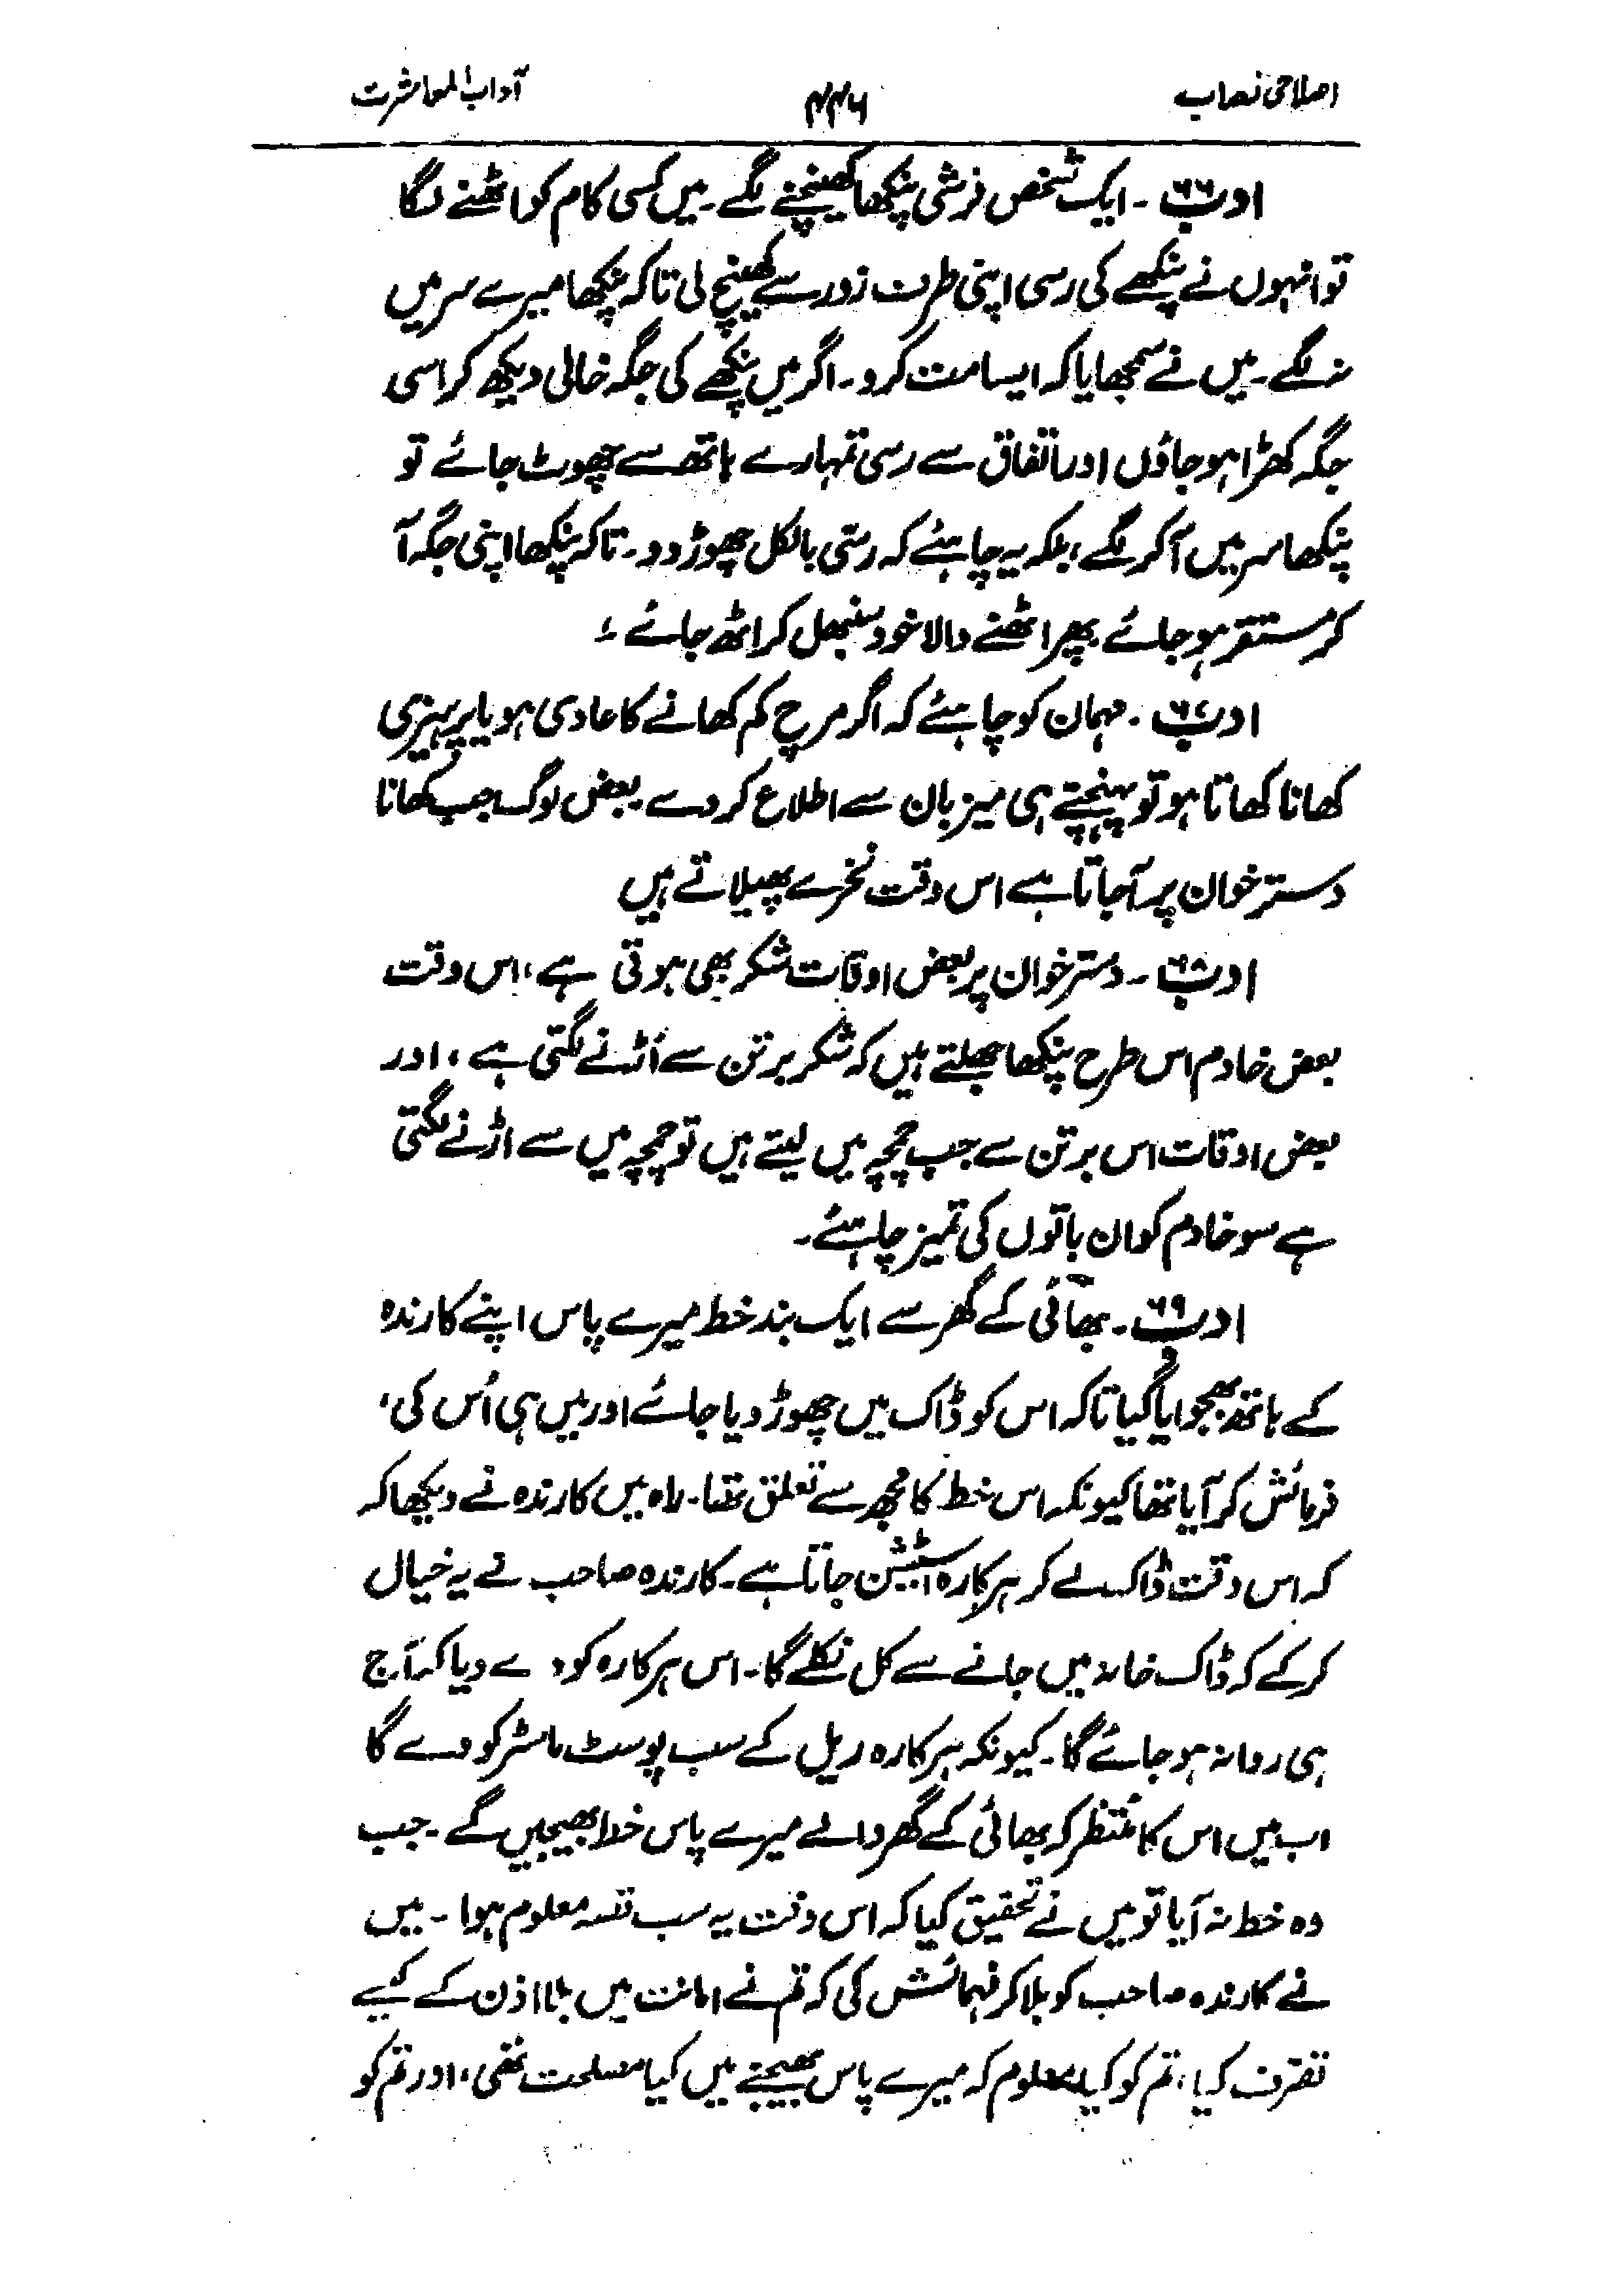 اصلاحی نصاب ۴۴۶ آداب المعاشرت
ادب ۶۶ ۔ ایک شخص فرشی پنکھا کھینچنے لگے ۔ میں کسی کام کو اٹھنے لگا
تو انہوں نے پنکھے کی رسی اپنی طرف زور سے کھینچ لی تاکہ پنکھا میرے سر میں
نہ لگے ۔ میں نے سمجھایا کہ ایسا مت کرو ۔ اگر میں پنکھے کی جگہ خالی دیکھ کر اسی
جگہ کھڑا ہو جاؤں اور اتفاق سے رسی تمہارے ہاتھ سے چھوٹ جائے تو
پنکھا سر میں آ کر لگے، بلکہ یہ چاہئے کہ رسّی بالکل چھوڑ دو ۔ تاکہ پنکھا اپنی جگہ آ
کر مستقر ہو جائے پھر اٹھنے والا خود سنبھل کر اٹھ جائے ؛
ادب ۶۷ ۔ مہمان کو چاہئے کہ اگر مرچ کم کھانے کا عادی ہو یا پرہیزی
کھانا کھاتا ہو تو پہنچتے ہی میزبان سے اطلاع کر دے ۔ بعض لوگ جب کھانا
دسترخوان پر آ جاتا ہے اس وقت نخرے پھیلاتے ہیں
ادب ۶۸ ۔ دسترخوان پر بعض اوقات شکر بھی ہوتی ہے، اس وقت
بعض خادم اس طرح پنکھا جھلتے ہیں کہ شکر برتن سے اُڑنے لگتی ہے، اور
بعض اوقات اس برتن سے جب چمچہ میں لیتے ہیں تو چمچہ میں سے اڑنے لگتی
ہے سو خادم کو ان باتوں کی تمیز چاہئے ۔
ادب ۶۹ ۔ بھائی کے گھر سے ایک بند خط میرے پاس اپنے کارندہ
کے ہاتھ بھجوایا گیا تاکہ اس کو ڈاک میں چھوڑ دیا جائے اور میں ہی اُس کی،
فرمائش کر آیا تھا کیونکہ اس خط کا مجھ سے تعلق تھا ۔ راہ میں کارندہ نے دیکھا کہ
کہ اس وقت ڈاک لے کر ہرکارہ اسٹیشن جاتا ہے ۔ کارندہ صاحب نے یہ خیال
کر کے کہ ڈاک خانہ میں جانے سے کل نکلے گا ۔ اس ہرکارہ کو دے دیا کہ آج
ہی روانہ ہو جائے گا ۔ کیونکہ ہرکارہ ریل کے سب پوسٹ ماسٹر کو دے گا
اب میں اس کا منتظر کہ بھائی کے گھر والے میرے پاس خط بھیجیں گے ۔ جب
وہ خط نہ آیا تو میں نے تحقیق کیا کہ اس وقت یہ سب قصہ معلوم ہوا ۔ میں
نے کارندہ صاحب کو بلا کر فہمائش کی کہ تم نے امانت میں بلا اذن کے کیسے
تصرف کیا، تم کو کیا معلوم کہ میرے پاس بھیجنے میں کیا مصلحت تھی، اور تم کو